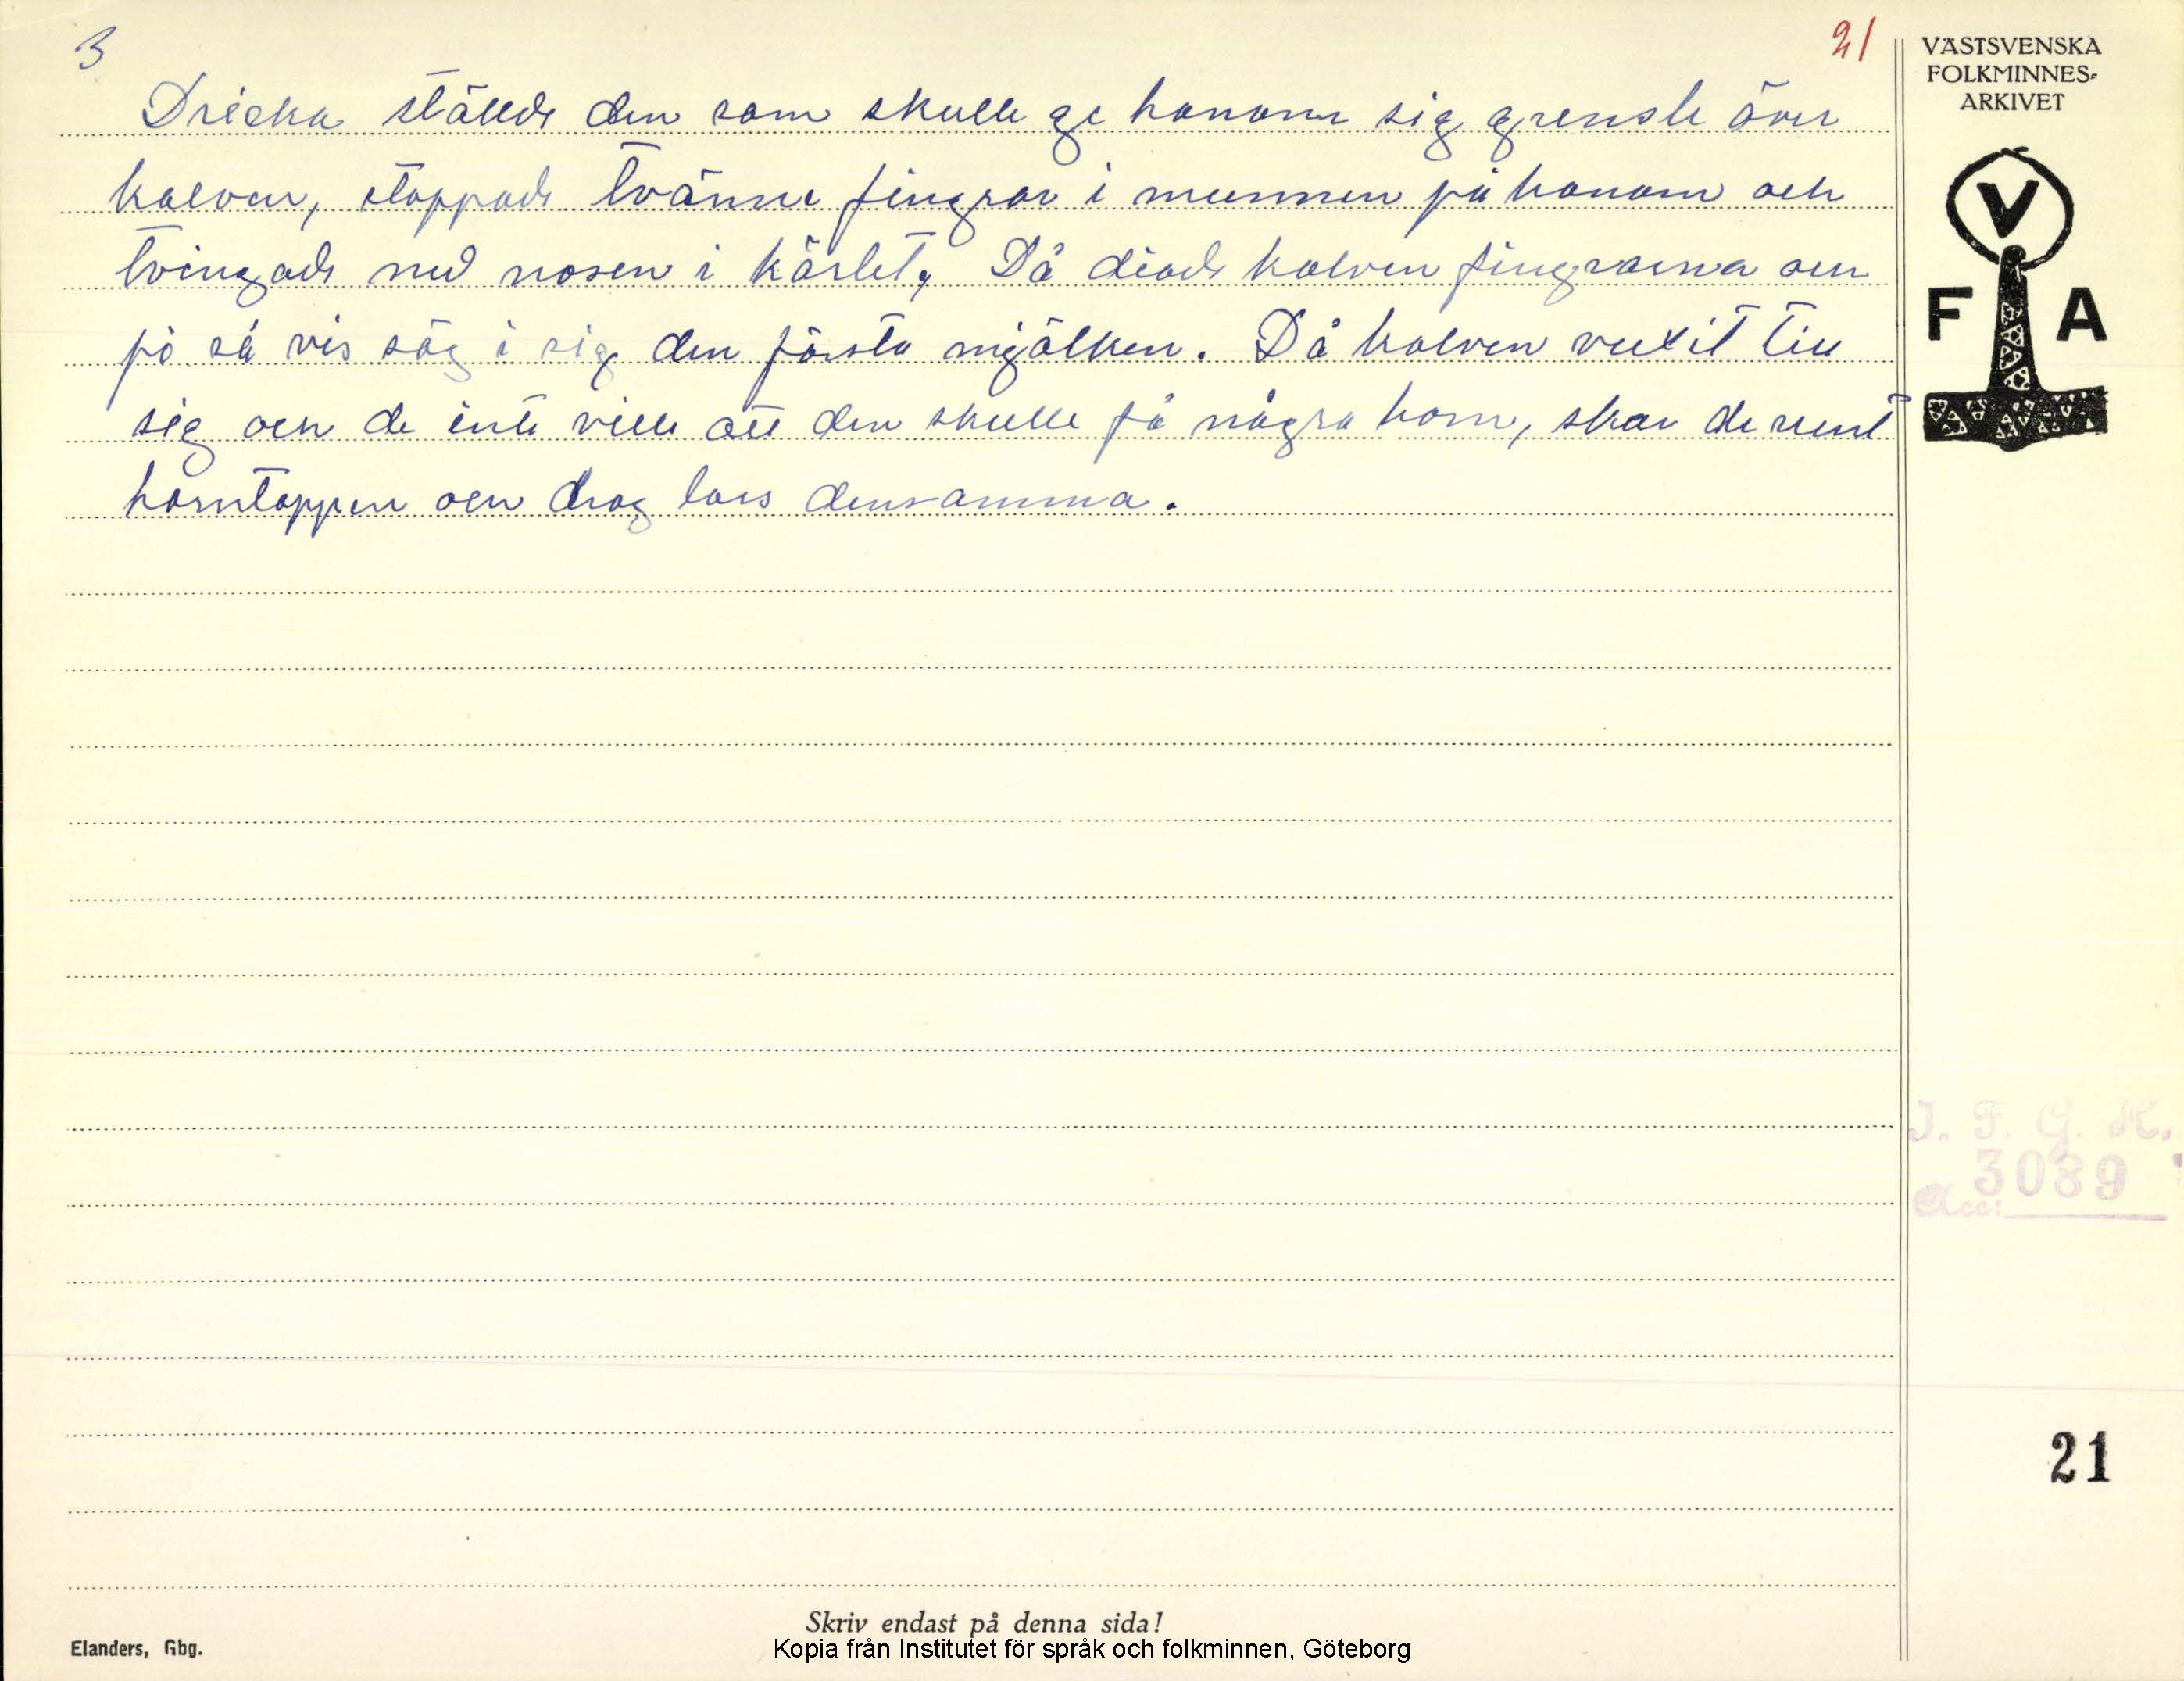 3
21
Dricka ställde den som skulle ge honom sig grensle över
kalven, stoppade tvänne fingrar i munnen på honom och
tvingade ned nosen i kärlet, Då diade kalven fingrarna och
på så vis sög i sig den första mjölken. Då kalven vuxit till
sig och de inte ville att den skulle få några horn, skar de runt
horntoppen och drog loss densamma.
VÄSTSVENSKA
FOLKMINNES-
ARKIVET
V
F A
I. F. G. H.
3089
Acc:
21
Skriv endast på denna sida!
Elanders, Gbg.
Kopia från Institutet för språk och folkminnen, Göteborg